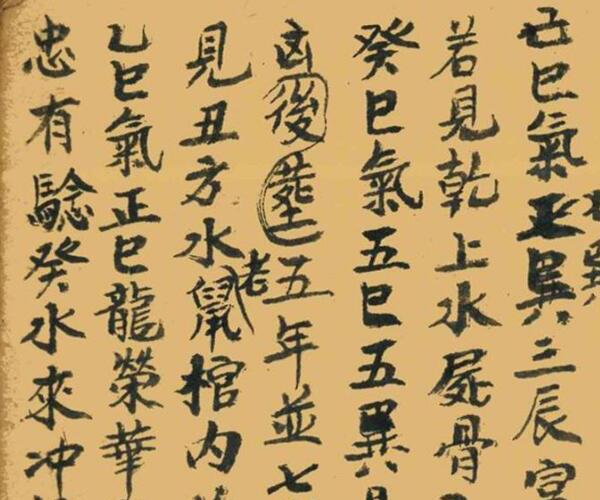 巳氣正巽三辰宮
若見乾上水屍骨
癸巳氣五巳五巽
凶後塟五年並七
見丑方水老鼠棺內
乙巳氣正巳龍榮華
忠有驗癸水來冲